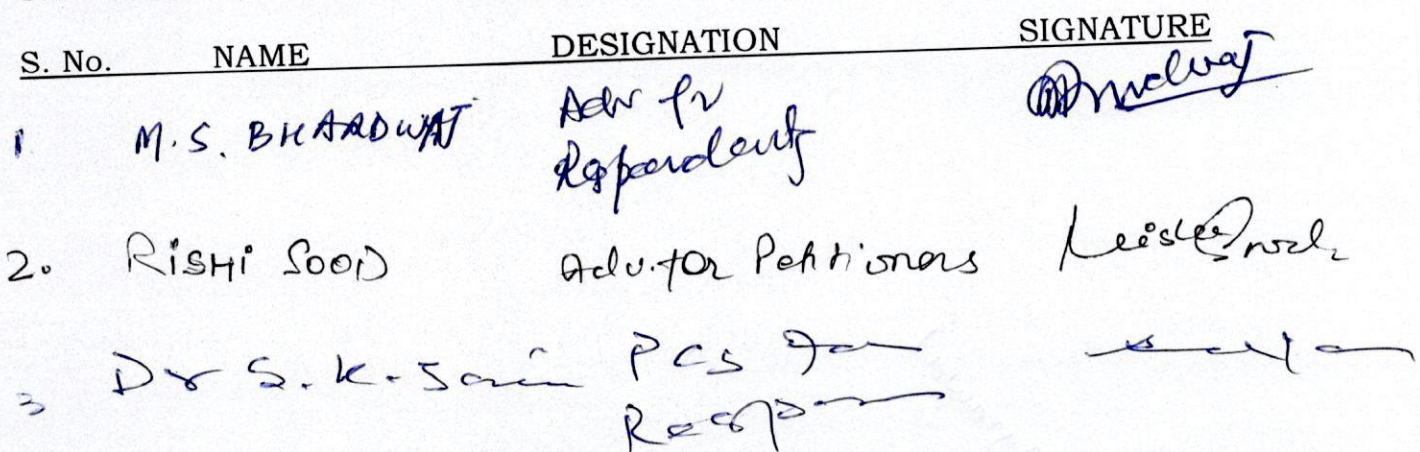 S. No. NAME DESIGNATION SIGNATURE
1. M.S. BHARDWAJ Adv for
Respondents
2. RiSHi SOOD Adv. for Petitioners
3 Dr S.K. Jain PCS for